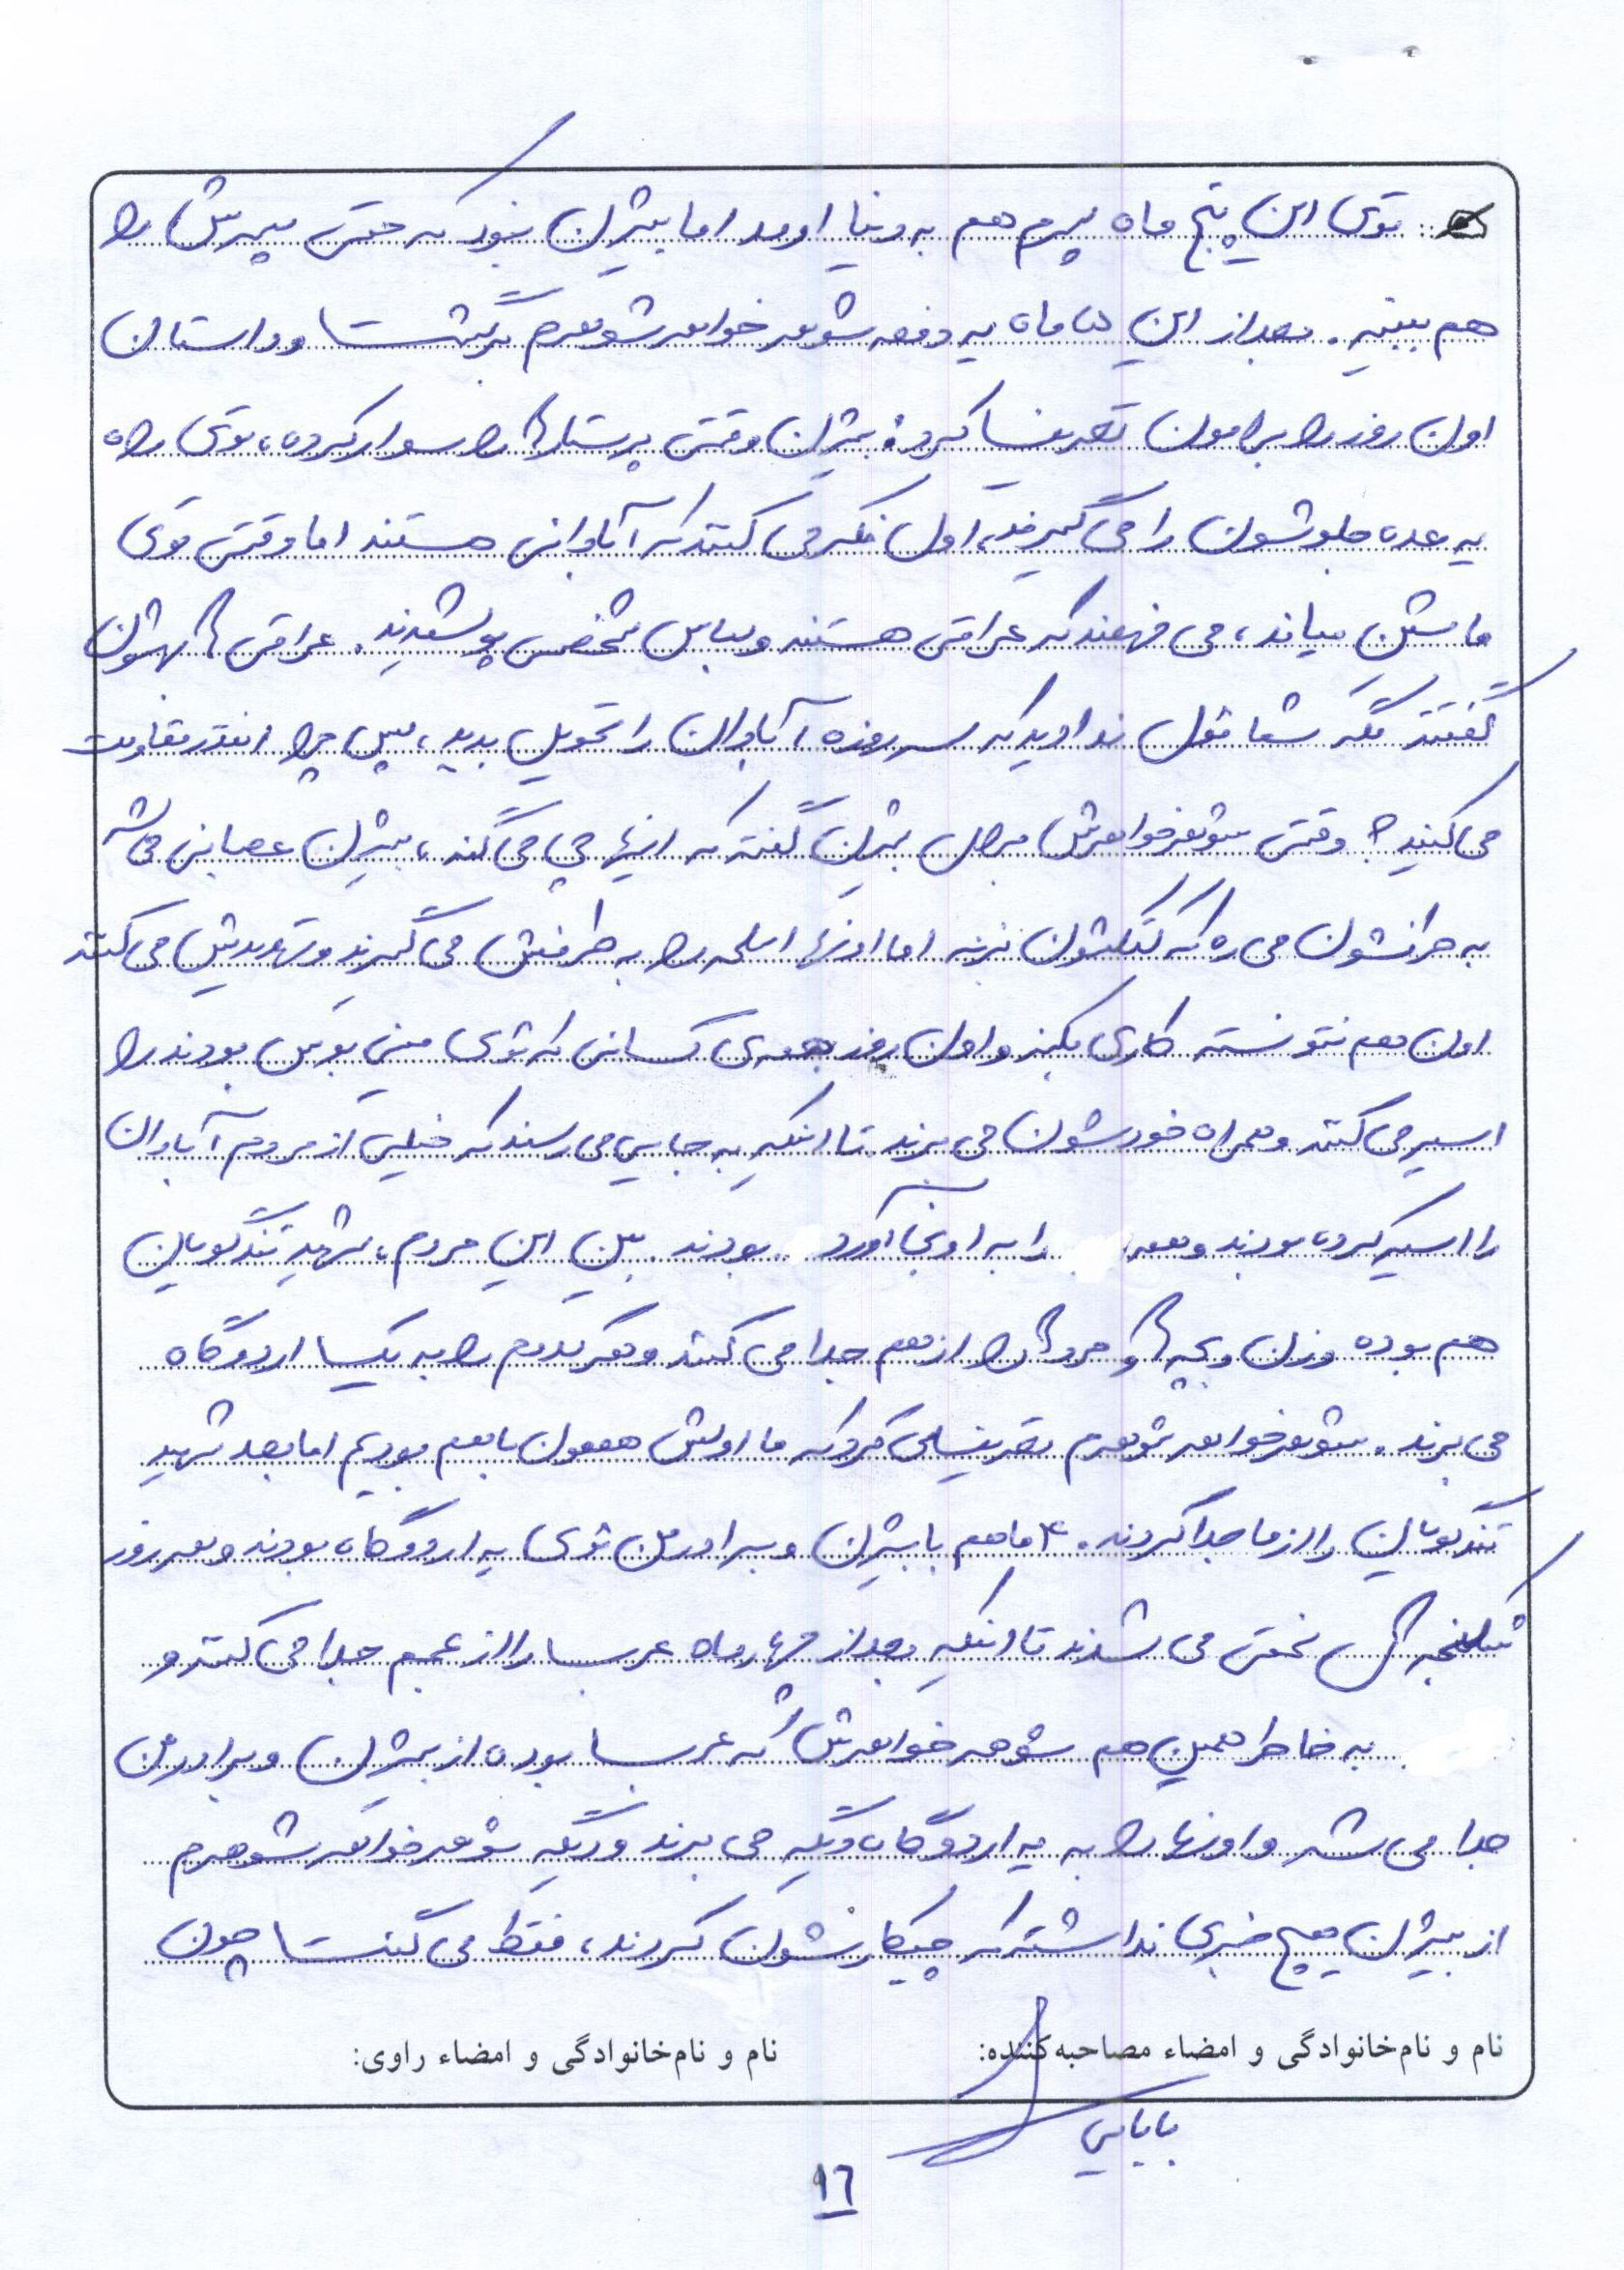 توی این پنج ماه پسرم هم به دنیا اومد اما بیژن نبود که حتی پسرش را
هم ببینه. بعد از این ۵ ماه یه دفعه شوهر خواهر شوهرم برگشت و داستان
اون روز را برامون تعریف کرد: بیژن وقتی پرستارها را سوار کرده، توی راه
یه عده جلوشون را می گیرند، اول فکر می کنند که آبادانی هستند اما وقتی توی
ماشین میاند، می فهمند که عراقی هستند و لباس شخصی پوشیدند. عراقی ها بهشون
گفتند مگه شما قول ندادید که سه روزه آبادان را تحویل بدید، پس چرا انقدر مقاومت
می کنید؟ وقتی شوهر خواهرش برای بیژن گفته که اینها چی می گند، بیژن عصبانی می شه
به طرفشون می ره که کتکشون بزنه اما اونها اسلحه را به طرفش می گیرند و تهدیدش می کنند
اون هم نتونسته کاری بکنه و اون روز همه ی کسانی که توی مینی بوس بودند را
اسیر می کنند و همراه خودشون می برند تا اینکه به جایی می رسند که خیلی از مردم آبادان
را اسیر کرده بودند و همه را به اونجا آورد بودند. بین این مردم، شهید تندگویان
هم بوده وزن و بچه ها و مردها را از هم جدا می کنند و هر کدوم را به یک اردوگاه
می برند. شوهر خواهر شوهرم تعریف می کرد که ما اولش هممون با هم بودیم اما بعد شهید
تندگویان را از ما جدا کردند. ۴ ماه هم با بیژن و برادر من توی یه اردوگاه بودند و هر روز
شکنجه های سختی می شدند تا اینکه بعد از چهار ماه عرب را از عجم جدا می کنند و
به خاطر همین هم شوهر خواهرش که عرب بوده از بیژن و برادر من
جدا می شه و اونها را به یه اردوگاه دیگه می برند و دیگه شوهر خواهر شوهرم
از بیژن هیچ خبری نداشته که چیکارشون کردند، فقط می گفت چون
نام و نام‌خانوادگی و امضاء مصاحبه‌کننده: نام و نام‌خانوادگی و امضاء راوی:
بابایی
۱۶